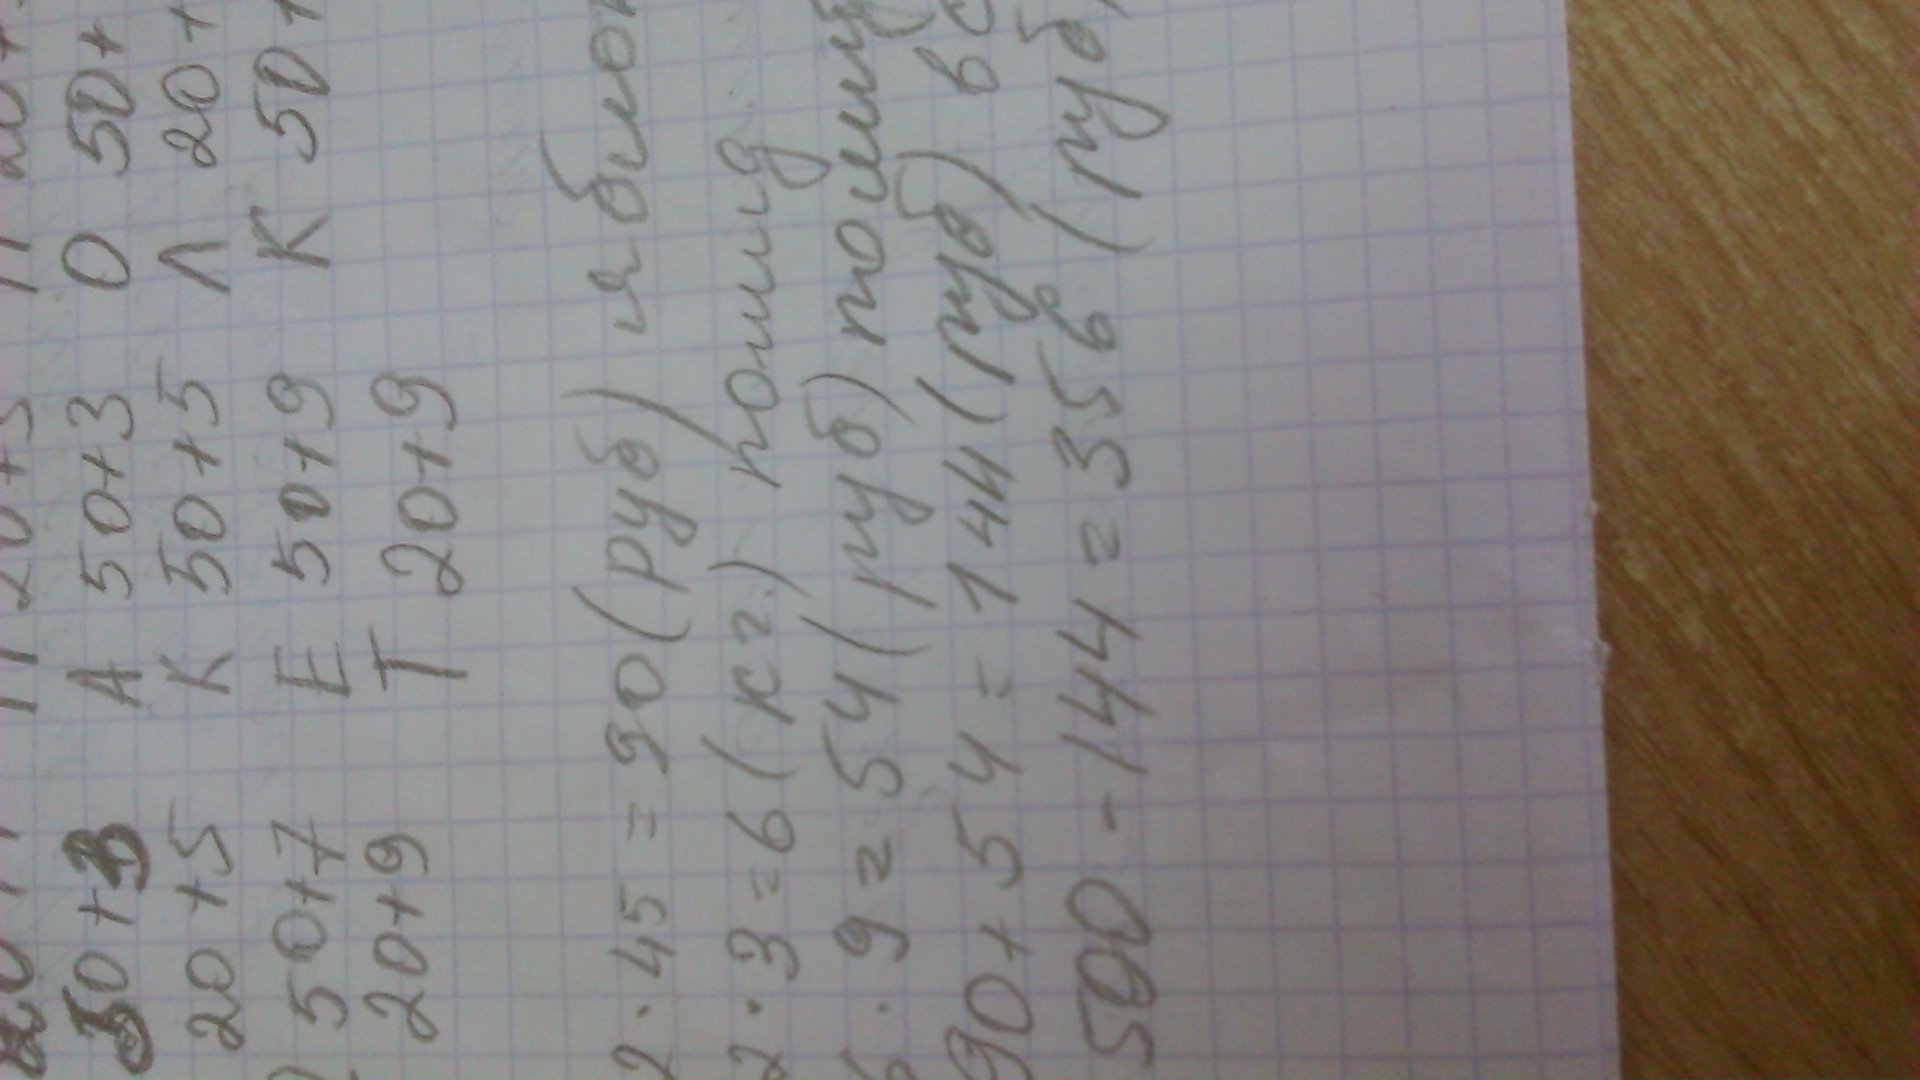 50+3 А 50+3 О 50+
20+5 К 50+5 Л 20+
50+7 Е 50+9 К 50+
20+9 Т 20+9
2·45=90(руб)
2·3=6(кг.) помид
6·9=54(руб)
90+54=144(руб)
500-144=356(руб)